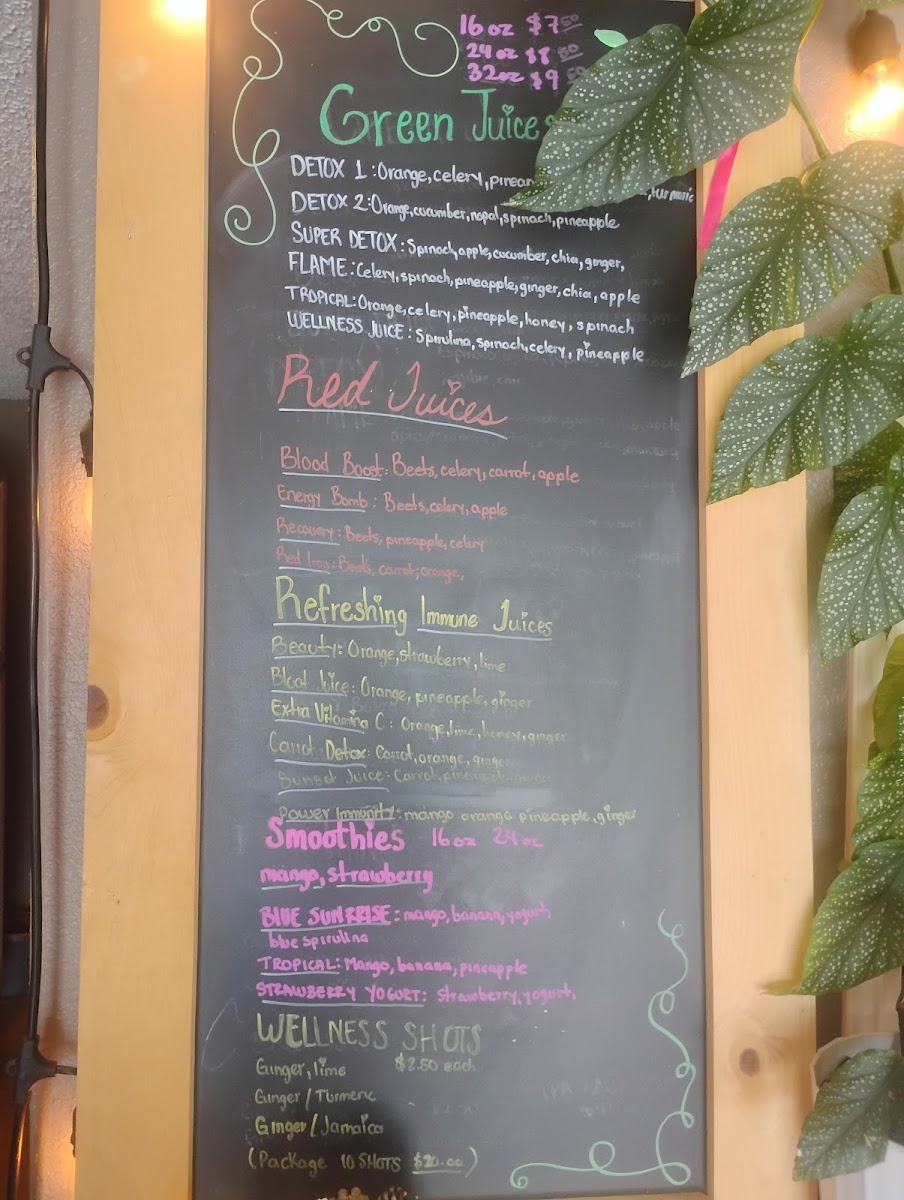 16 oz $7.50
24 oz $8.50
32oz $9
Green Juices
DETOX 1 : Orange, celery, , turmeric
DETOX 2: Orange, cucumber, nopal, spinach, pineapple
SUPER DETOX : Spinach, apple, cucumber, chia, ginger,
FLAME : Celery, spinach, pineapple, ginger, chia, apple
TROPICAL: Orange, celery, pineapple, honey, spinach
WELLNESS JUICE : Spirulina, spinach, celery, pineapple
Red Juices
Blood Boost: Beets, celery, carrot, apple
Energy Bomb : Beets, celery, apple
Recovery: Beets, pineapple, celery
Red Iron: Beets, carrot, orange,
Refreshing Immune Juices
Beauty: Orange, strawberry, lime
Bloat Juice: Orange, pineapple, ginger
Extra Vitamina C : Orange, lime, honey, ginger
Carrot Detox: Carrot, orange, ginger
Sunset Juice: Carrot,
Power Immunity: mango orange pineapple, ginger
Smoothies 16 oz 24 oz
mango, strawberry
BLUE SUNRISE : mango, banana, yogurt,
blue spirulina
TROPICAL: Mango, banana, pineapple
STRAWBERRY YOGURT: strawberry, yogurt,
WELLNESS SHOTS
Ginger, lime $2.50 each
Ginger / Turmeric
Ginger / Jamaica
(Package 10 SHOTS $20.00)